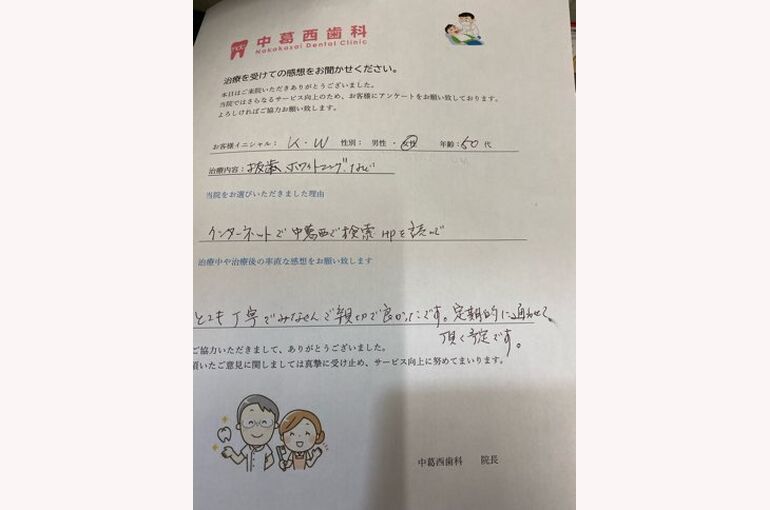 中葛西歯科
Nakakasai Dental Clinic
治療を受けての感想をお聞かせください。
本日はご来院いただきありがとうございました。
当院ではさらなるサービス向上のため、お客様にアンケートをお願い致しております。
よろしければご協力お願い致します。
お客様イニシャル： K・W 性別： 男性 ・ 女性 年齢：50 代
治療内容：抜歯、ホワイトニング など
当院をお選びいただきました理由
インターネットで中葛西で検索 HPを読んで
治療中や治療後の率直な感想をお願い致します
とても丁寧でみなさんご親切で良かったです。定期的に通わせて
頂く予定です。
ご協力いただきまして、ありがとうございました。
頂いたご意見に関しましては真摯に受け止め、サービス向上に努めてまいります。
中葛西歯科 院長